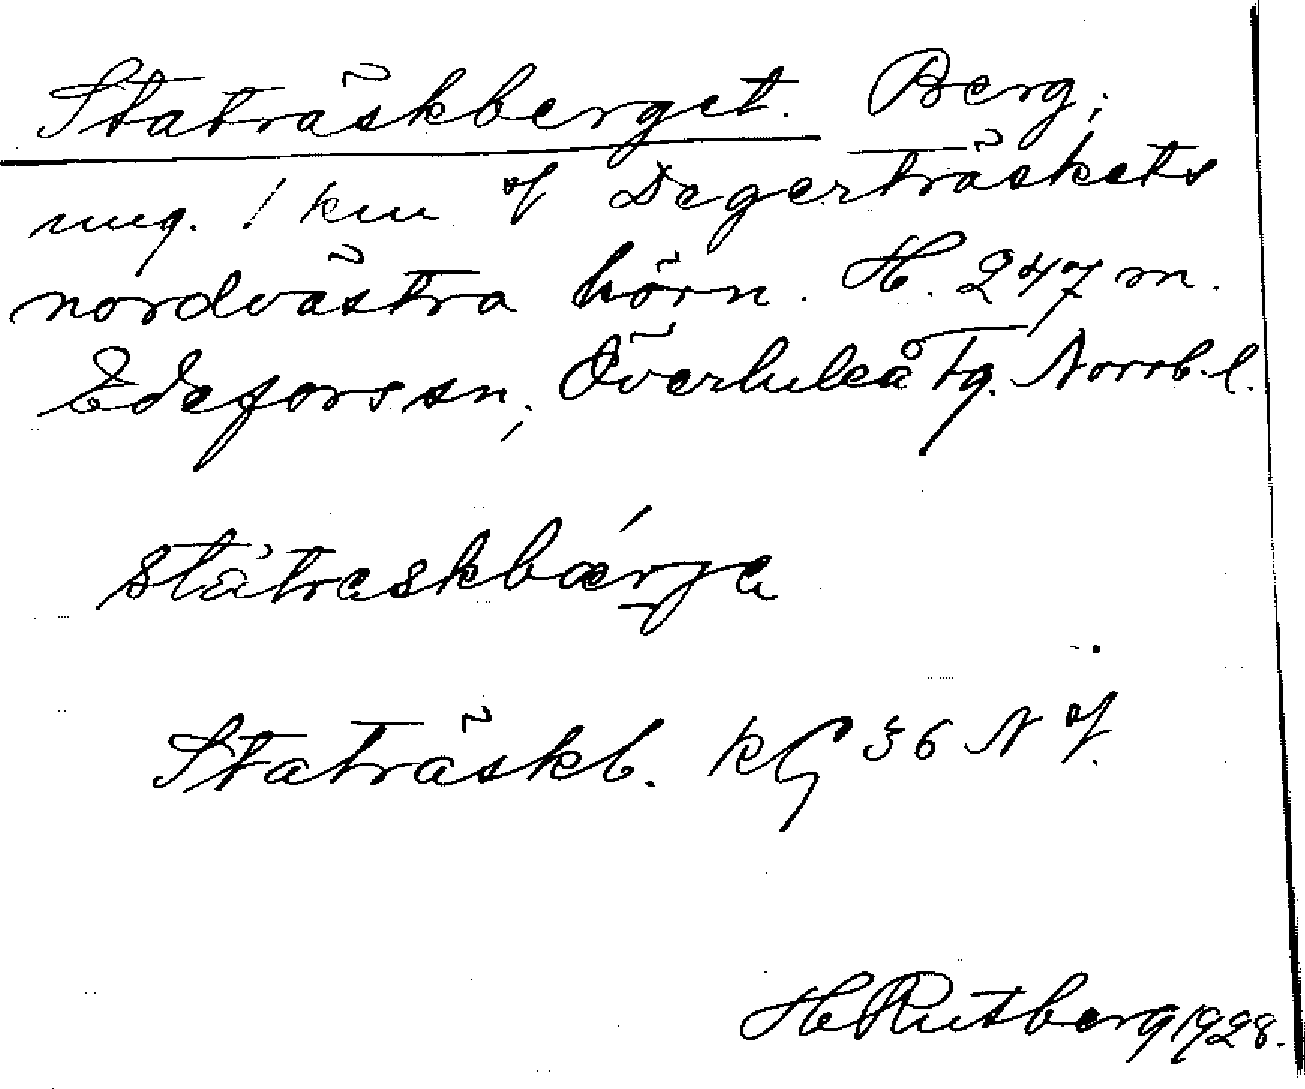 Staträskberget. Berg,
ung. 1 km of Degerträskets
nordvästra hörn. H. 247 m.
Edefors sn, Överluleå tg. Norrb. l.
Staträskb. 56 N
H Rutberg 1928.